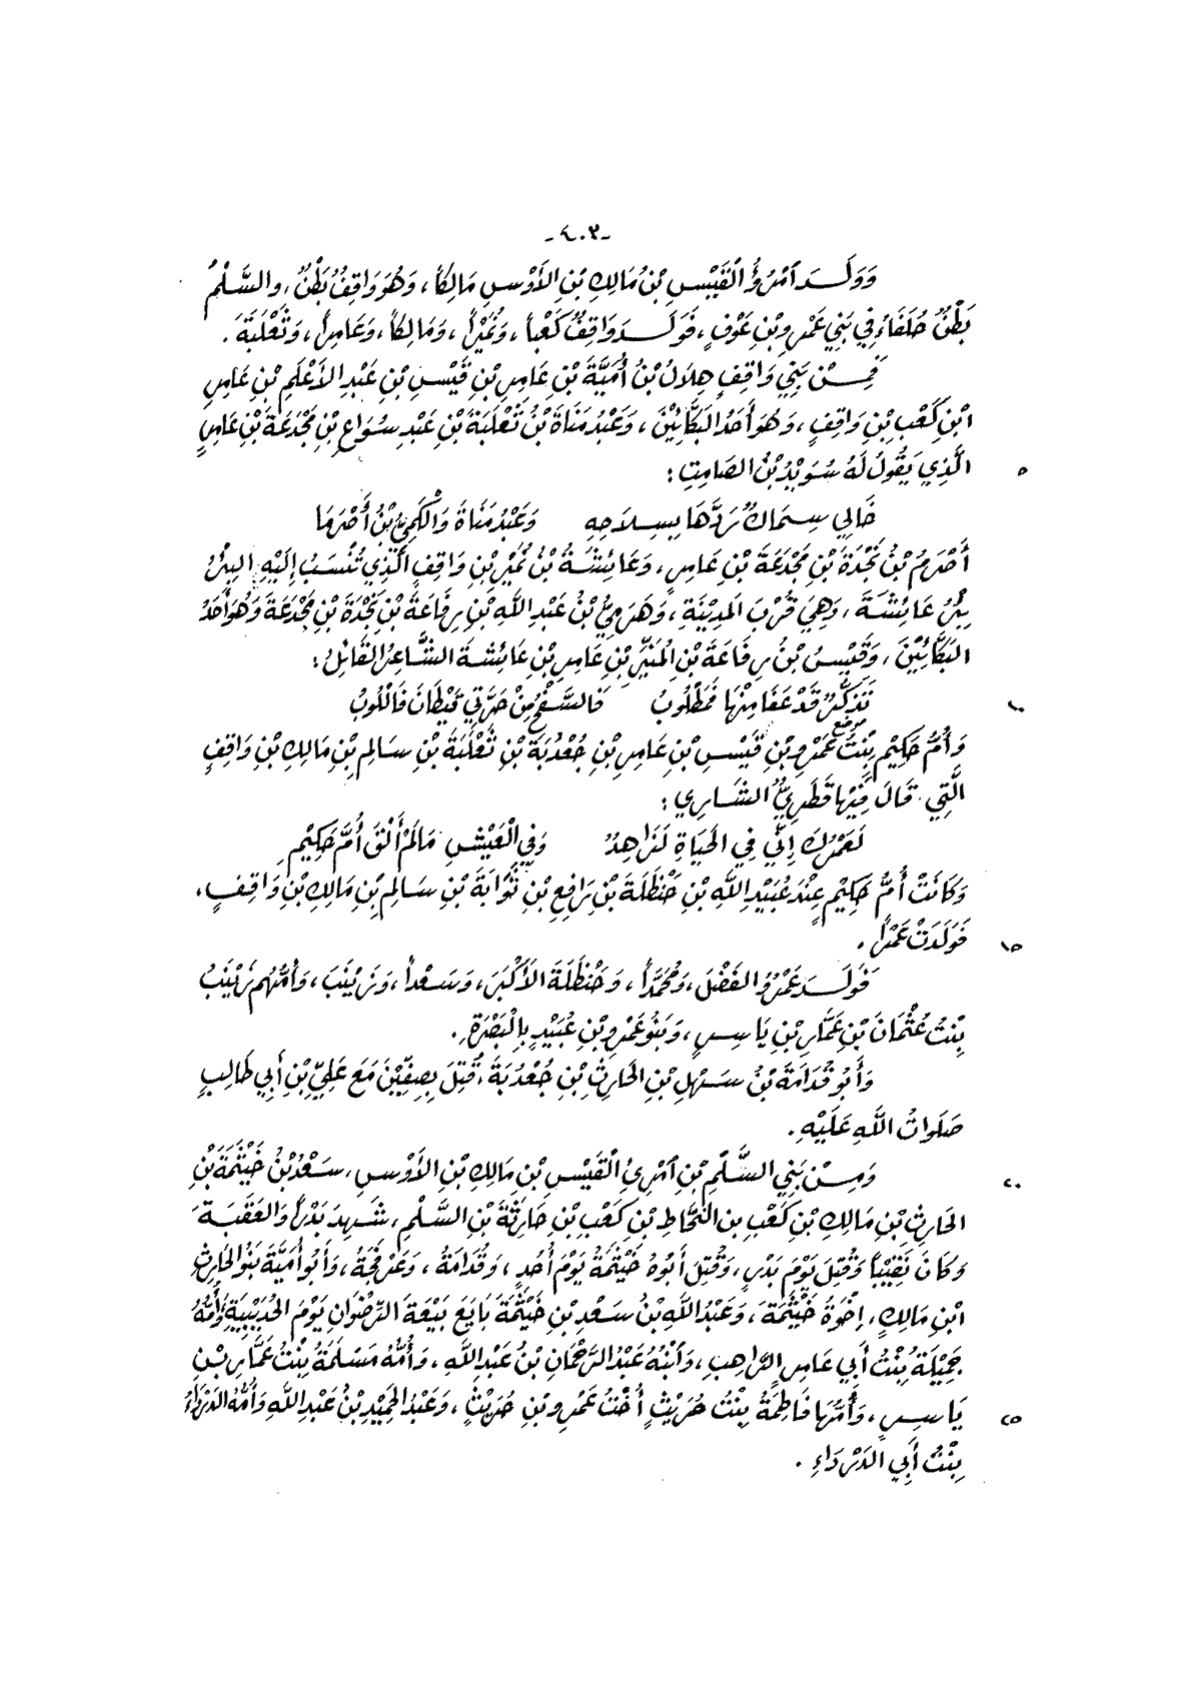 -٤٠٣-
وَوَلَـدَ ٱمْرُؤُ ٱلْقَيْسِ بْنُ مَالِكِ بْنِ الأَوْسِ مَالِكاً، وَهُوَ وَاقِفُ بَطْنٌ، والسَّلْمُ
بَطْنٌ حُلَفَاءُ فِي بَنِي عَمْرِو بْنِ عَوْفٍ، فَوَلَـدَ وَاقِفٌ كَعْباً، وَنُمَيْراً، وَمَالِكاً، وَعَامِراً، وَثَعْلَبَةَ.
فَمِـنْ بَنِي وَاقِفٍ هِلَالُ بْنُ أُمَيَّةَ بْنِ عَامِرِ بْنِ قَيْسِ بْنِ عَبْدِ الأَعْلَمِ بْنِ عَامِرِ
ابْنِ كَعْبِ بْنِ وَاقِفٍ، وَهُوَ أَحَدُ البَكَّائِيْنَ، وَعَبْدُ مَنَاةَ بْنُ ثَعْلَبَةَ بْنِ عَبْدِ سُوَاعِ بْنِ مَجْدَعَةَ بْنِ عَامِرٍ
الَّذِي يَقُولُ لَهُ سُوَيْدُ بْنُ الصَّامِتِ: ٥
خَالِي سِمَاكٌ رَدَّهَا بِسِلَاحِهِ وَعَبْدُ مَنَاةَ وَالْكَمِيُّ بْنُ أَصْرَمَا
أَصْرَمُ بْنُ نَجْدَةَ بْنِ مَجْدَعَةَ بْنِ عَامِرٍ، وَعَائِشَـةُ بْنُ نُمَيْرِ بْنِ وَاقِفٍ الَّذِي تُنْسَبُ إِلَيْهِ البِئْرُ
بِئْرُ عَائِشَـةَ، وَهِيَ قُرْبَ المَدِيْنَةِ، وَهَرَمِيُّ بْنُ عَبْدِ اللَّهِ بْنِ رِفَاعَةَ بْنِ نَجْدَةَ بْنِ مَجْدَعَةَ وَهُوَ أَحَدُ
البَكَّائِيْنَ، وَقَيْسُ بْنُ رِفَاعَةَ بْنِ المُنَيِّرِ بْنِ عَامِرِ بْنِ عَائِشَةَ الشَّاعِرُ القَائِلُ:
تَذَكَّرْ قَدْ عَفَا مِنْهَا فَمَطْلُوبُ فَالسَّفْحُ مِنْ حَرَّتِي قَيْطَانَ فَاللُّوبُ ١٠
موضع
وَأُمُّ حَكِيْمٍ بِنْتُ عَمْرِو بْنِ قَيْسِ بْنِ عَامِرِ بْنِ جُعْدُبَةَ بْنِ ثَعْلَبَةَ بْنِ سَالِمِ بْنِ مَالِكِ بْنِ وَاقِفٍ
الَّتِي قَالَ فِيْهَا قَطَرِيُّ الشَّـارِي:
لَعَمْرُكَ إِنِّي فِي الحَيَاةِ لَزَاهِدٌ وَفِي الْعَيْشِ مَالَمْ أَلْقَ أُمَّ حَكِيْمِ
وَكَانَتْ أُمُّ حَكِيْمٍ عِنْدَ عُبَيْدِ اللَّهِ بْنِ حَنْظَلَةَ بْنِ رَافِعِ بْنِ ثَوَابَةَ بْنِ سَالِمِ بْنِ مَالِكِ بْنِ وَاقِفٍ،
فَوَلَدَتْ عَمْراً. ١٥
فَوَلَـدَ عَمْرٌو الفَضْلَ، وَمُحَمَّداً، وَحَنْظَلَةَ الأَكْبَرَ، وَسَعْداً، وَزَيْنَبَ، وَأُمُّهُم زَيْنَبُ
بِنْتُ عُثْمَانَ بْنِ عَمَّارِ بْنِ يَاسِرٍ، وَبَنُو عَمْرِو بْنِ عُبَيْدٍ بِالْبَصْرَةِ.
وَأَبُو قُدَامَةَ بْنُ سَهْلِ بْنِ الحَارِثِ بْنِ جُعْدُبَةَ، قُتِلَ بِصِفِّيْنَ مَعَ عَلِيِّ بْنِ أَبِي طَالِبٍ
صَلَوَاتُ اللَّهِ عَلَيْهِ.
وَمِـنْ بَنِي السَّلْمِ بْنِ ٱمْرِئِ ٱلْقَيْسِ بْنِ مَالِكِ بْنِ الأَوْسِ، سَعْدُ بْنُ خَيْثَمَةَ بْنِ ٢٠
الحَارِثِ بْنِ مَالِكِ بْنِ كَعْبِ بن النَّحَّاطِ بْنِ كَعْبِ بْنِ حَارِثَةَ بْنِ السَّلْمِ، شَهِدَ بَدْراً وَالعَقَبَةَ
وَكَانَ نَقِيْباً وَقُتِلَ يَوْمَ بَدْرٍ، وَقُتِلَ أَبُوهُ خَيْثَمَةُ يَوْمَ أُحُدٍ، وَقُدَامَةُ، وَعَرْفَجَةُ، وَأَبُو أُمَيَّةَ بَنُو الحَارِثِ
ابْنِ مَالِكٍ، إِخْوَةُ خَيْثَمَةَ، وَعَبْدُ اللَّهِ بْنُ سَعْدِ بْنِ خَيْثَمَةَ بَايَعَ بَيْعَةَ الرِّضْوَانِ يَوْمَ الحُدَيْبِيَةِ، وَأُمُّهُ
جَمِيْلَةُ بِنْتُ أَبِي عَامِرٍ الرَّاهِبِ، وَٱبْنُهُ عَبْدُ الرَّحْمَانِ بْنُ عَبْدِ اللَّهِ، وَأُمُّهُ مَسْلَمَةُ بِنْتُ عَمَّارِ بْنِ
يَاسِرٍ، وَأُمُّهَا فَاطِمَةُ بِنْتُ حُرَيْثٍ أُخْتُ عَمْرِو بْنِ حُرَيْثٍ، وَعَبْدُ الحَمِيْدِ بْنُ عَبْدِ اللَّهِ وَأُمُّهُ الدَّرْدَاءُ ٢٥
بِنْتُ أَبِي الدَّرْدَاءِ.